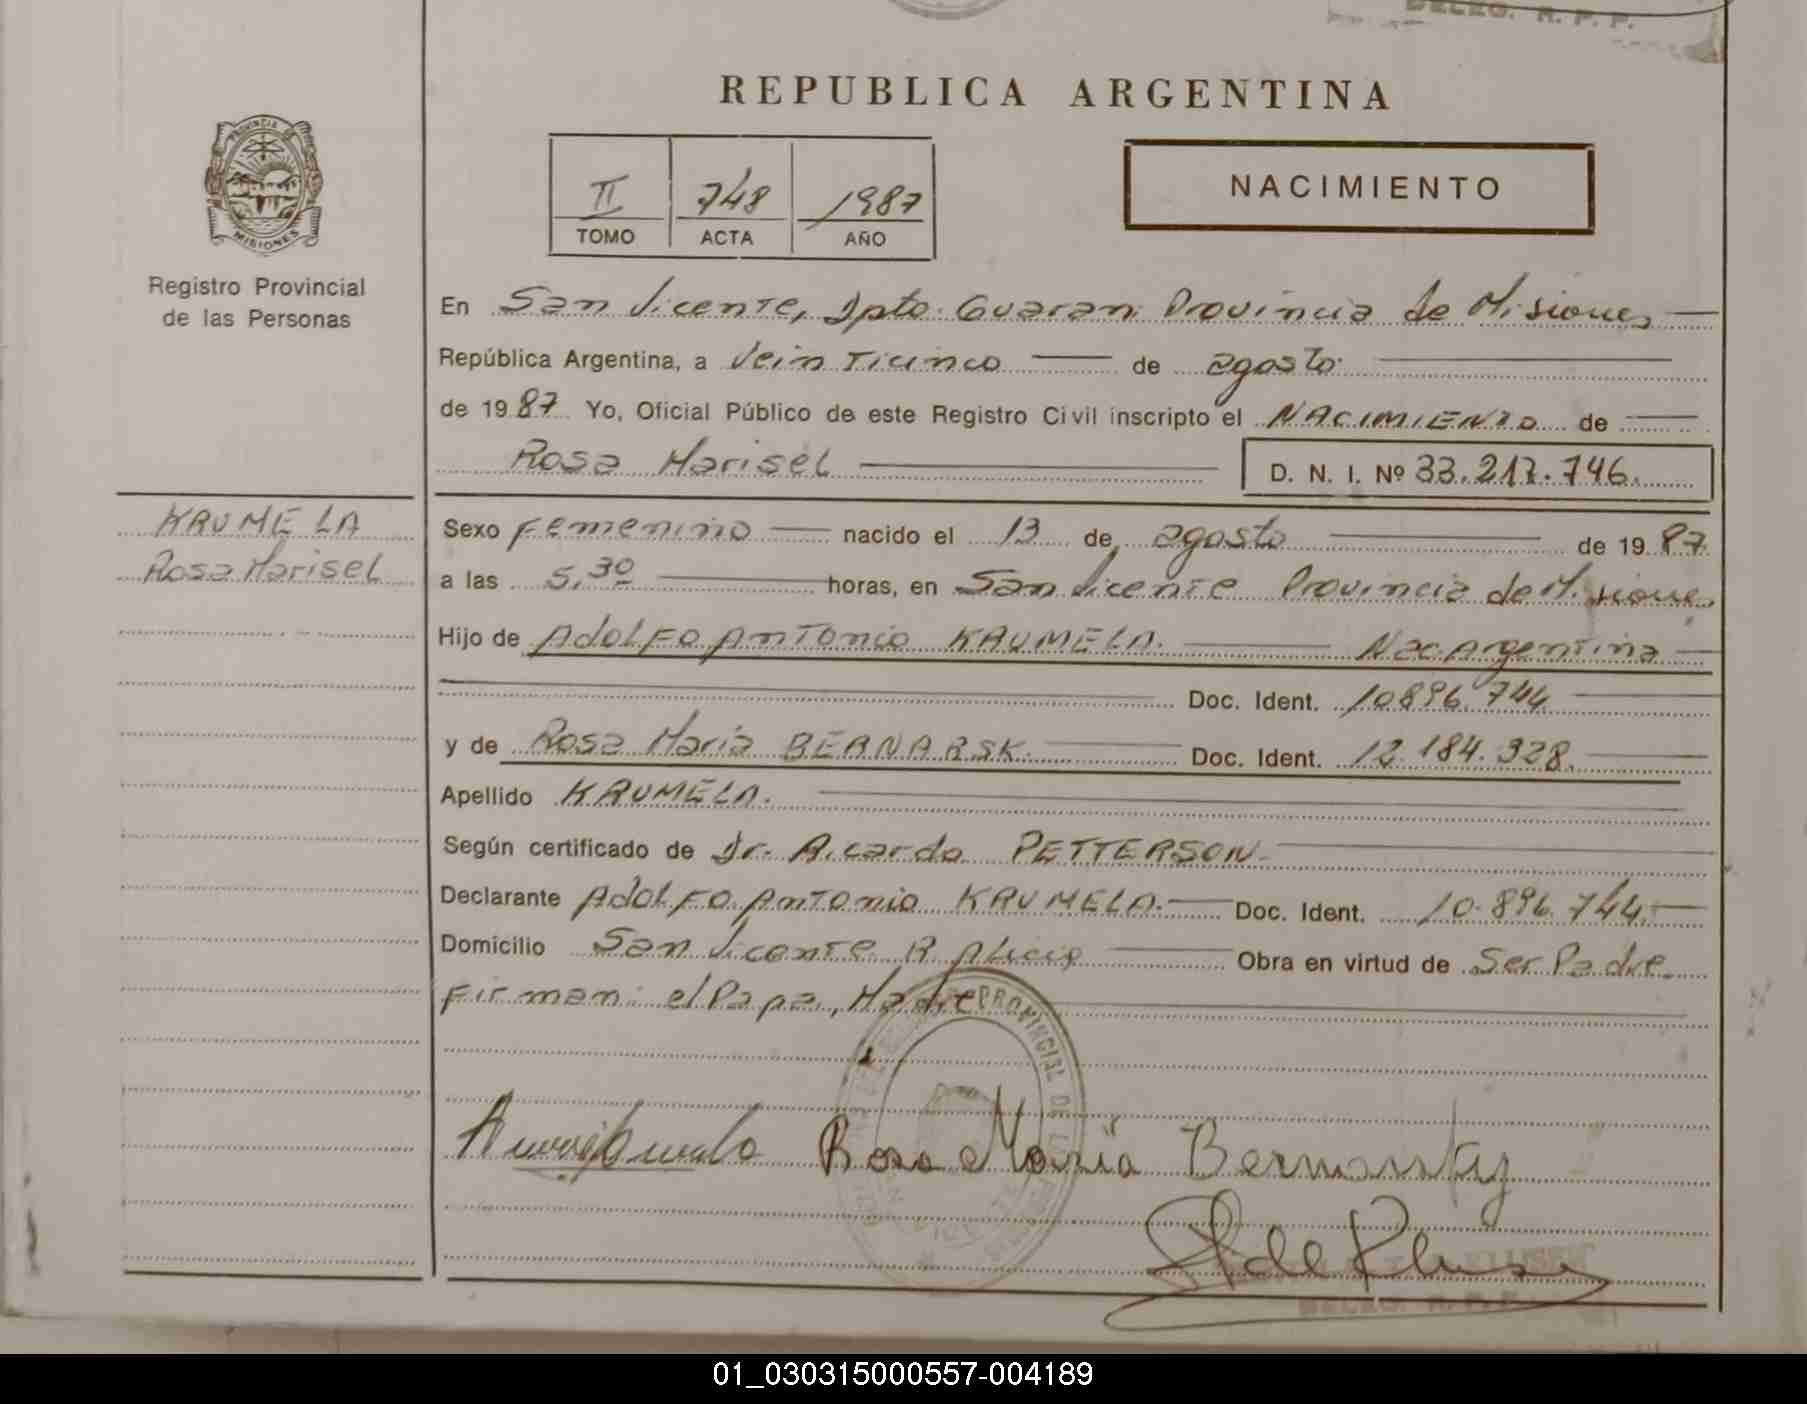 DELEG. R. P. P.
REPUBLICA ARGENTINA
PROVINCIA DE
MISIONES
Registro Provincial
de las Personas
II 748 1987
TOMO ACTA AÑO
NACIMIENTO
En San Vicente, Dpto. Guarani Provincia de Misiones
República Argentina, a Veinticinco de agosto
de 1987 Yo, Oficial Público de este Registro Civil inscripto el NACIMIENTO de
Rosa Marisel D. N. I. Nº 33.217.746.
KRUMELA
Rosa Marisel
Sexo femenino nacido el 13 de agosto de 1987
a las 5,30 horas, en San Vicente Provincia de Misiones
Hijo de Adolfo Antonio KRUMELA. Nac Argentina
Doc. Ident. 10.896.744
y de Rosa Maria BERNARSK. Doc. Ident. 12.184.328.
Apellido KRUMELA.
Según certificado de Dr. Ricardo PETTERSON
Declarante Adolfo Antonio KRUMELA. Doc. Ident. 10.896.744.
Domicilio San Vicente P. Alicia Obra en virtud de Ser Padre.
Firman: el Papa, Madre
PROVINCIAL DE
Rosa Maria Bernarsky
DELEG. R. P. P.
01_030315000557-004189